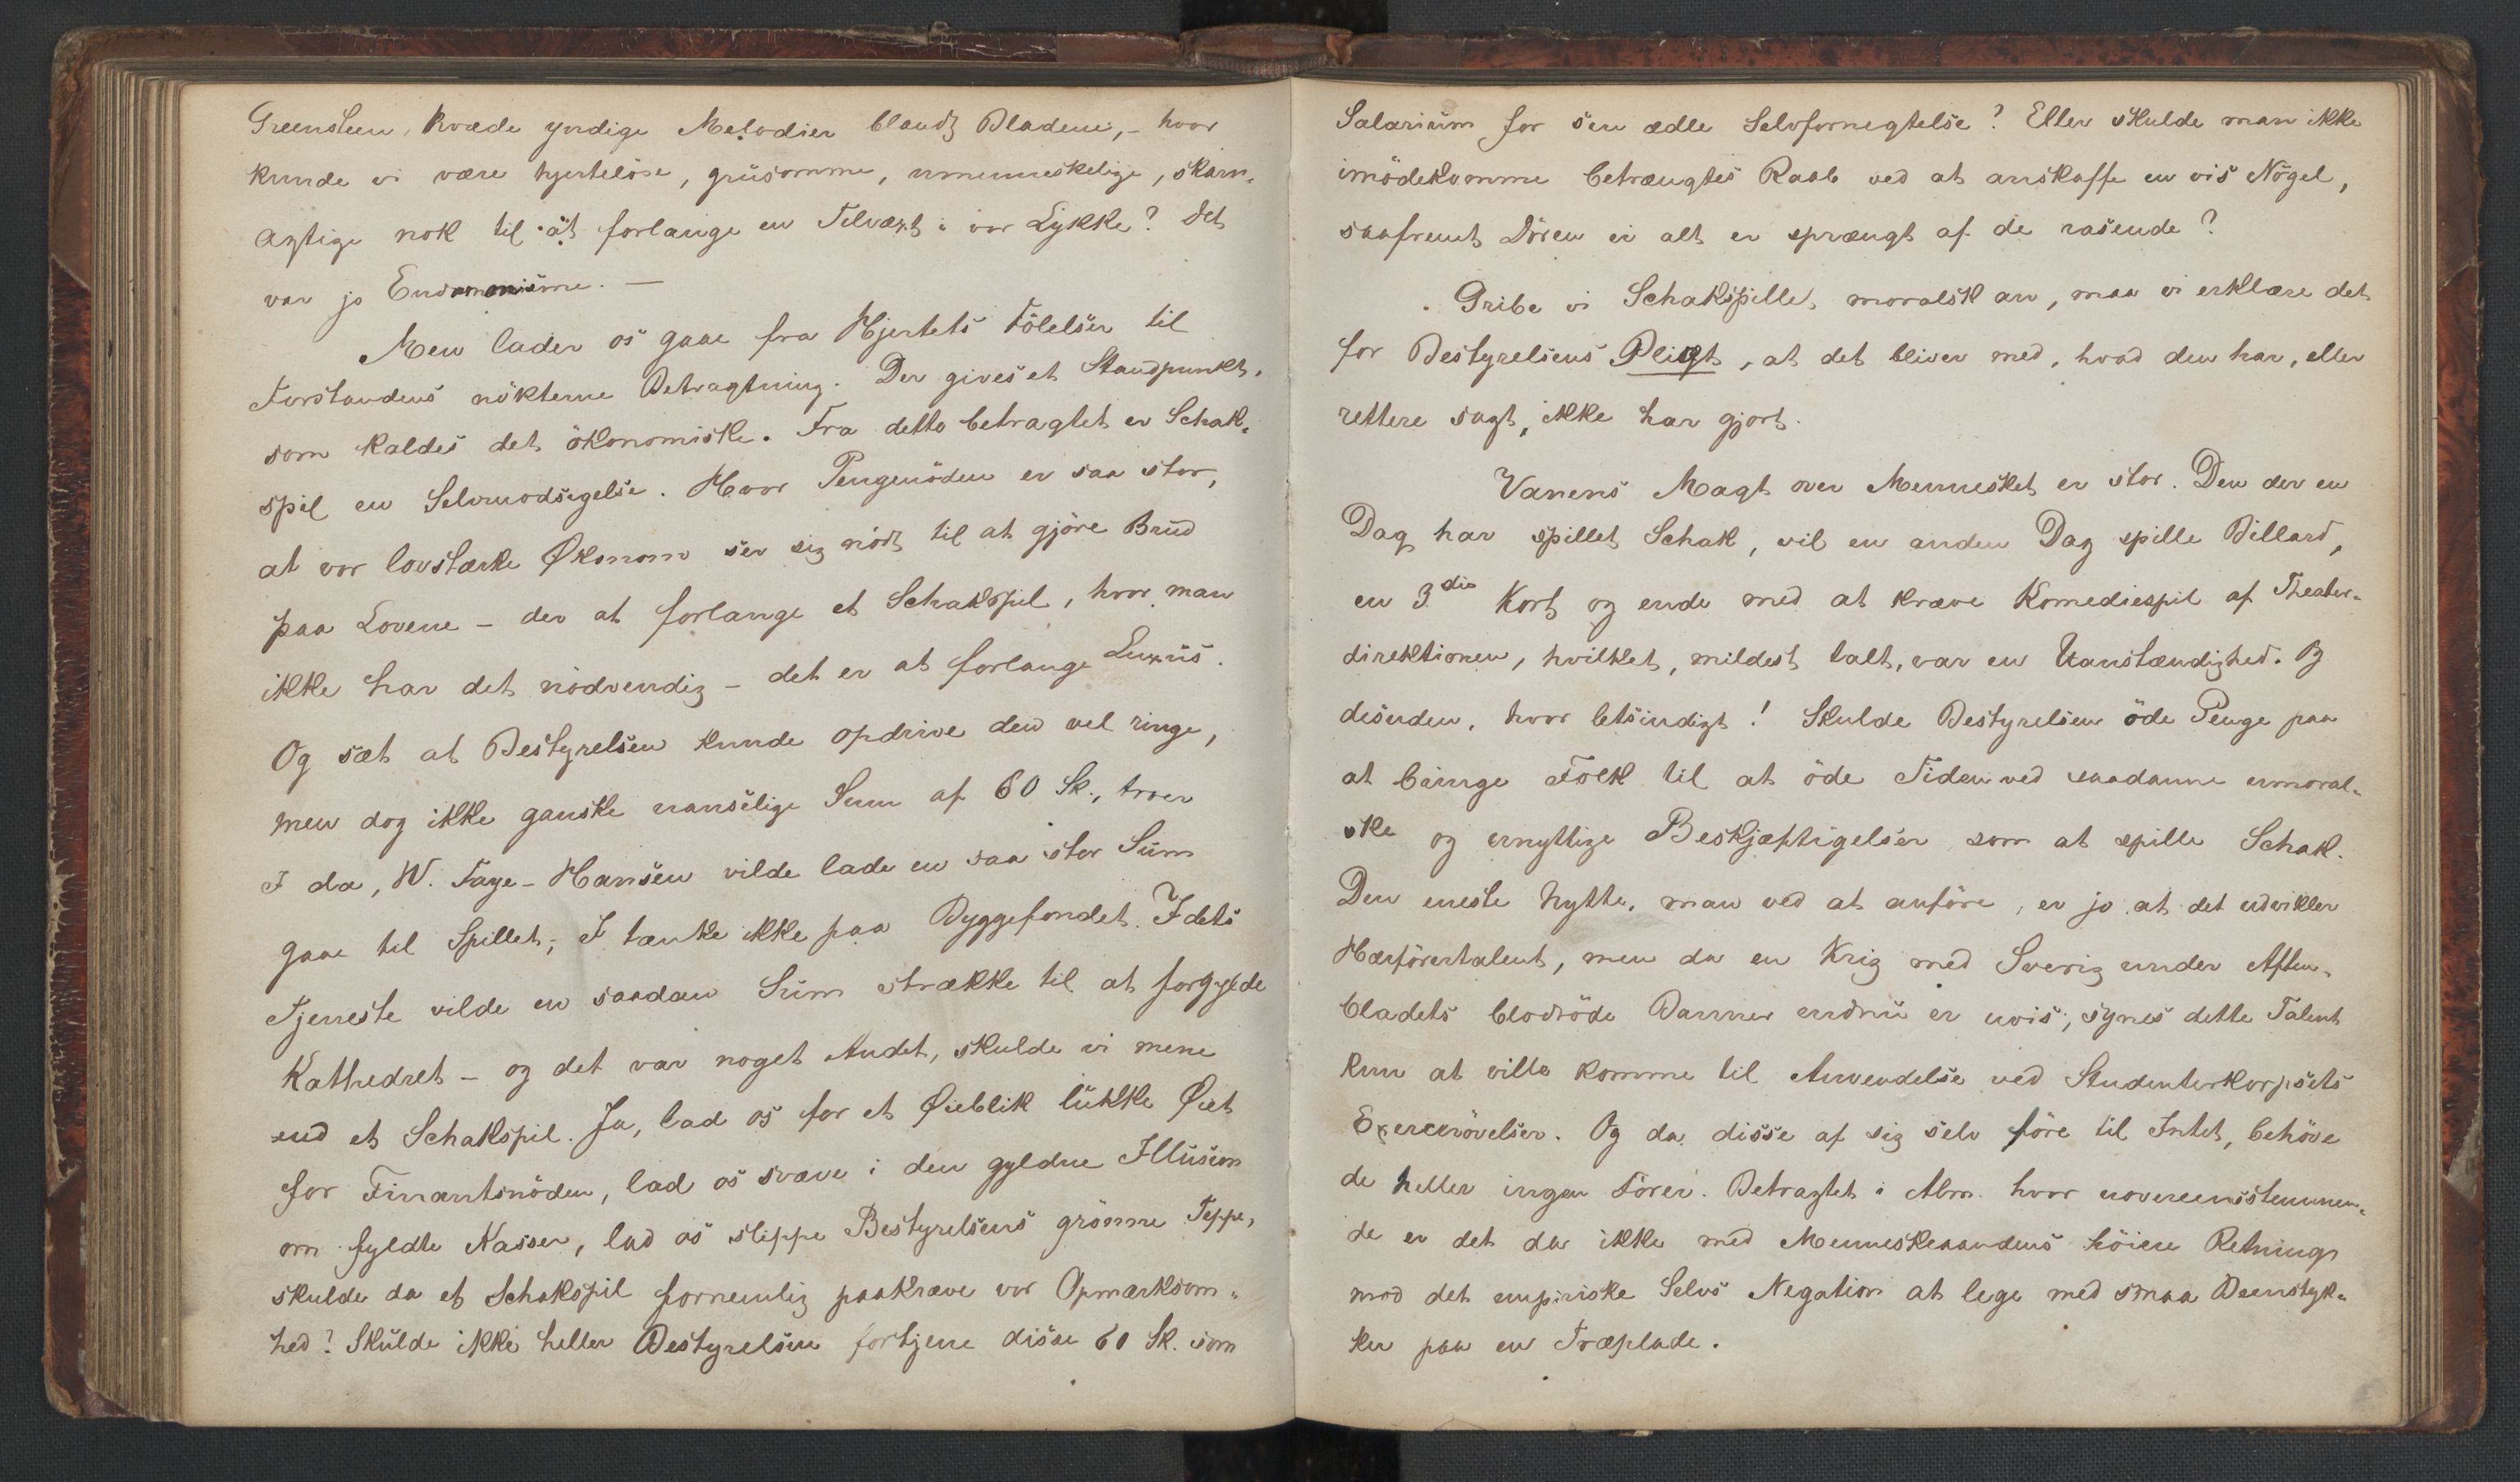 Greensteen, kvæde yndige Melodier blandt Bladene, – hvor
kunde vi være hjerteløse, grüsomme, umenneskelige, skarn-
agtige nok til at forlange en Tilvæxt i vor Lykke? Det
var jo Eudomonisme. –
Men lader os gaae fra Hjertets Følelser til
Forstandens nökterne Betragtning. Der gives et Standpunkt,
som kaldes det ökonomiske. Fra dette betragtet er Schak-
spil en Selvmodsigelse. Hvor Pengenöden er saa stor,
at vor lovstærke Økonom ser sig nödt til at gjöre Brud
paa Lovene – der at forlange et Schakspil, hvor man
ikke har det nödvendig – det er at forlange Luxüs.
Og sæt at Bestyrelsen kunde opdrive den vel ringe,
men dog ikke ganske uanselige Sum af 60 Sk., troer
I da, W. Faye-Hansen vilde lade en saa stor Süm
gaae til Spillet; I tænke ikke paa Byggefondet. I dets
Tjeneste vilde en saadan Süm strække til at forgylde
Kathedret – og det var noget Andet, skulde vi mene
end et Schakspil. Ja, lad os for et Øieblik lükke Øiet
for Finantsnöden, lad os svæve i den gyldne Illüsion
om fyldte Kasser, lad os slippe Bestyrelsens grönne Teppe,
skulde da et Schakspil fornemlig paakræve vor Opmærksom-
hed? Skülde ikke heller Bestyrelsen fortjene disse 60 Sk. som
Salariüm for sin ædle Selvfornegtelse? Eller skulde man ikke
imödekomme betrængtes Raab ved at anskaffe en vis Nögel,
saafremt Dören ei alt er sprængt af de rasende?
Gribe vi Schakspillet moralsk an, maa vi erklære det
for Bestyrelsens Pligt, at det bliver med, hvad den har, eller
rettere sagt, ikke har gjort.
Vanens Magt over Mennesket er stor. Den der en
Dag har spillet Schak, vil en anden Dag spille Billard,
en 3die Kort og ende med at kræve Komediespil af Theater-
direktionen, hvilket, mildest talt, var en Uanstændighed. Og
desuden, hvor letsindigt! Skulde Bestyrelsen öde Penge paa
at bringe Folk til at öde Tiden ved saadanne umoral-
ske og unyttige Beskjæftigelser som at spille Schak.
Den eneste Nytte, man ved at anföre, er jo at det udvikler
Hærförertalent, men da en Krig med Sverig under Aften-
bladets blodröde Banner endnü er uvis, synes dette Talent
kun at ville komme til Anvendelse ved Studenterkorpsets
Exercerövelser. Og da disse af sig selv före til Intet, behöve
de heller ingen Förer. Betragtet i Alm. hvor uovereensstemmen-
de er det da ikke med Menneskeaandens höiere Retning
mod det empiriske Selvs Negation at lege med smaa Beenstyk-
ker paa en Træplade.